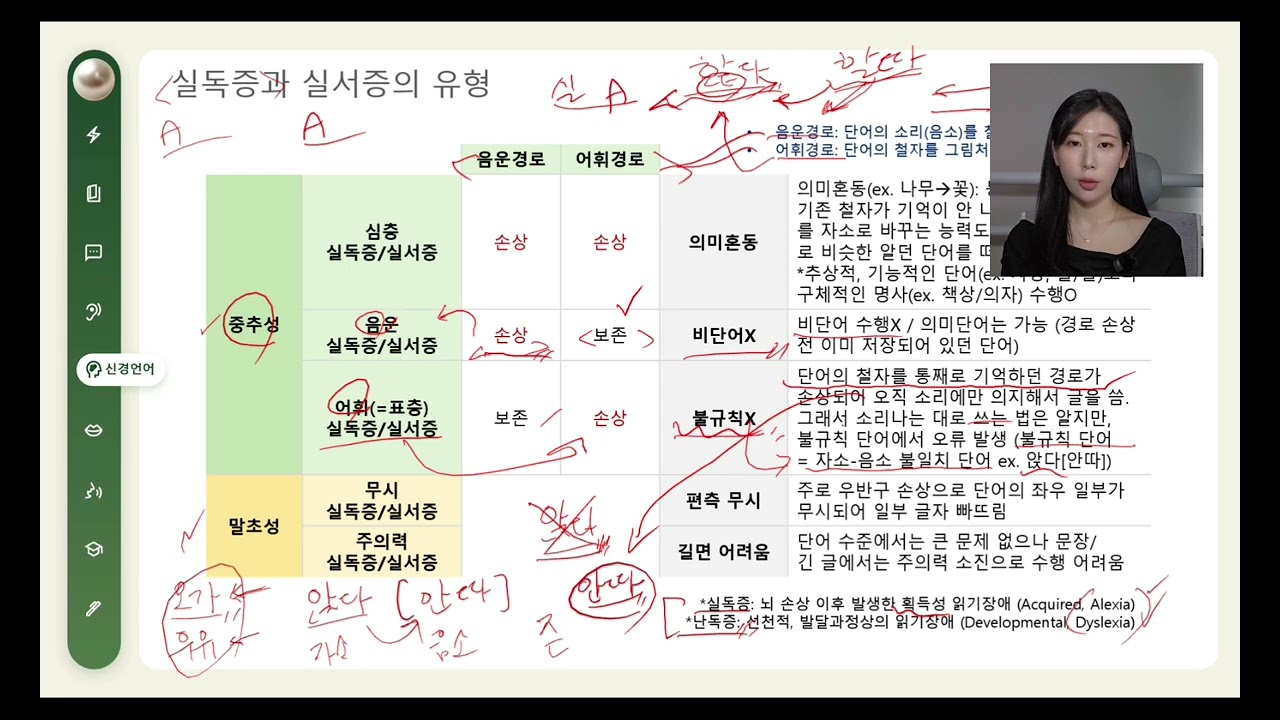 실독증과 실서증의 유형
실 A
핥다
할따
A
A
음운경로: 단어의 소리(음소)를
어휘경로: 단어의 철자를 그림처
음운경로 어휘경로
중추성
심층
실독증/실서증
손상
손상
의미혼동
의미혼동(ex. 나무→꽃):
기존 철자가 기억이 안
를 자소로 바꾸는 능력도
로 비슷한 알던 단어를
*추상적, 기능적인 단어(ex.
구체적인 명사(ex. 책상/의자) 수행O
음운
실독증/실서증
손상
보존
비단어X
비단어 수행X / 의미단어는 가능 (경로 손상
전 이미 저장되어 있던 단어)
어휘(=표층)
실독증/실서증
보존
손상
불규칙X
단어의 철자를 통째로 기억하던 경로가
손상되어 오직 소리에만 의지해서 글을 씀.
그래서 소리나는 대로 쓰는 법은 알지만,
불규칙 단어에서 오류 발생 (불규칙 단어
= 자소-음소 불일치 단어 ex. 앉다[안따])
말초성
무시
실독증/실서증
편측 무시
주로 우반구 손상으로 단어의 좌우 일부가
무시되어 일부 글자 빠뜨림
주의력
실독증/실서증
길면 어려움
단어 수준에서는 큰 문제 없으나 문장/
긴 글에서는 주의력 소진으로 수행 어려움
앉다
안따
오가
우유
앉다 [안따]
자소 음소
*실독증: 뇌 손상 이후 발생한 획득성 읽기장애 (Acquired, Alexia)
*난독증: 선천적, 발달과정상의 읽기장애 (Developmental, Dyslexia)
신경언어